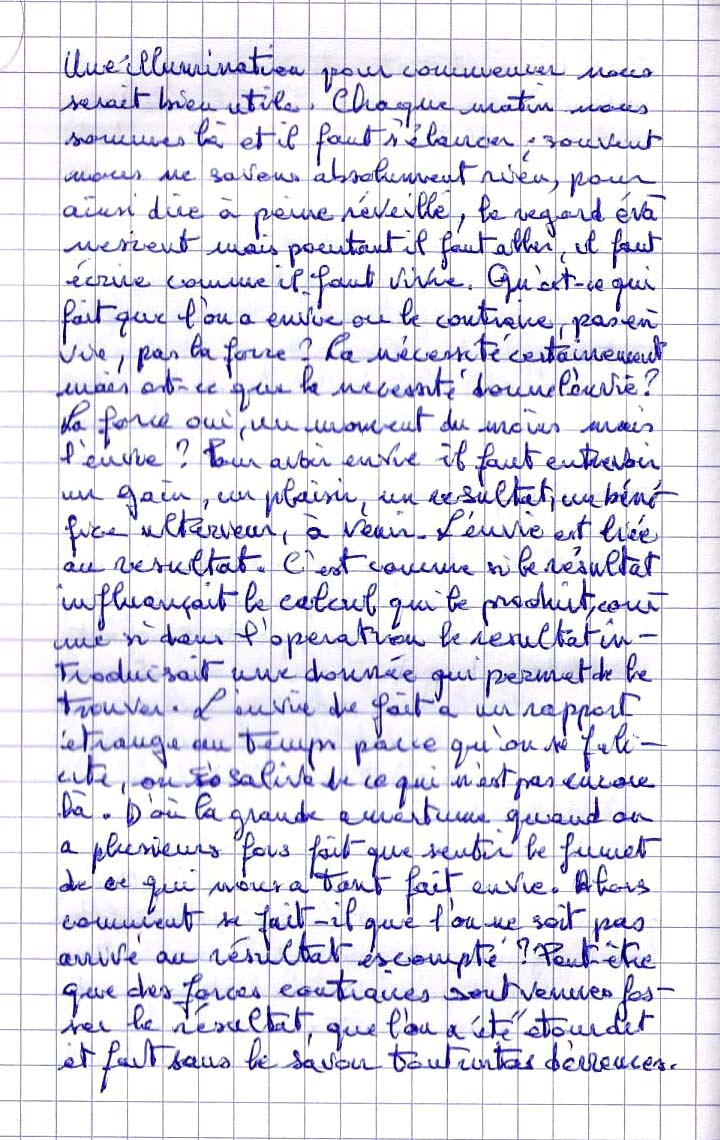 Une illumination pour commencer nous
serait bien utile. Chaque matin nous
sommes là et il faut s'élancer, souvent
nous ne savons absolument rien, pour
ainsi dire à peine réveillé, le regard éva
nescent mais pourtant il faut aller, il faut
écrire comme il faut vivre. Qu'est-ce qui
fait que l'on a envie ou le contraire, pas en
vie, pas la force? La nécessité certainement
mais est-ce que la necessité donne l'envie?
La force oui, un moment du moins mais
l'envie? Pour avoir envie il faut entrevoir
un gain, un plaisir, un resultat, un béné-
fice ultérieur, à venir. L'envie est liée
au resultat. C'est comme si le résultat
influançait le calcul qui le produit, com
me si dans l'operation le resultat in-
troduisait une donnée qui permet de le
trouver. L'envie de fait a un rapport
étrange au temps parce qu'on se féli-
cite, on salive de ce qui n'est pas encore
là. D'où la grande amertume quand on
a plusieurs fois fait que sentir le fumet
de ce qui nous a tant fait envie. Alors
comment se fait-il que l'on ne soit pas
arrivé au résultat escompté? Peut-être
que des forces contraires sont venues fos-
ser le résultat, que l'on a été étourdit
et fait sans le savoir tout un tas d'érreures.